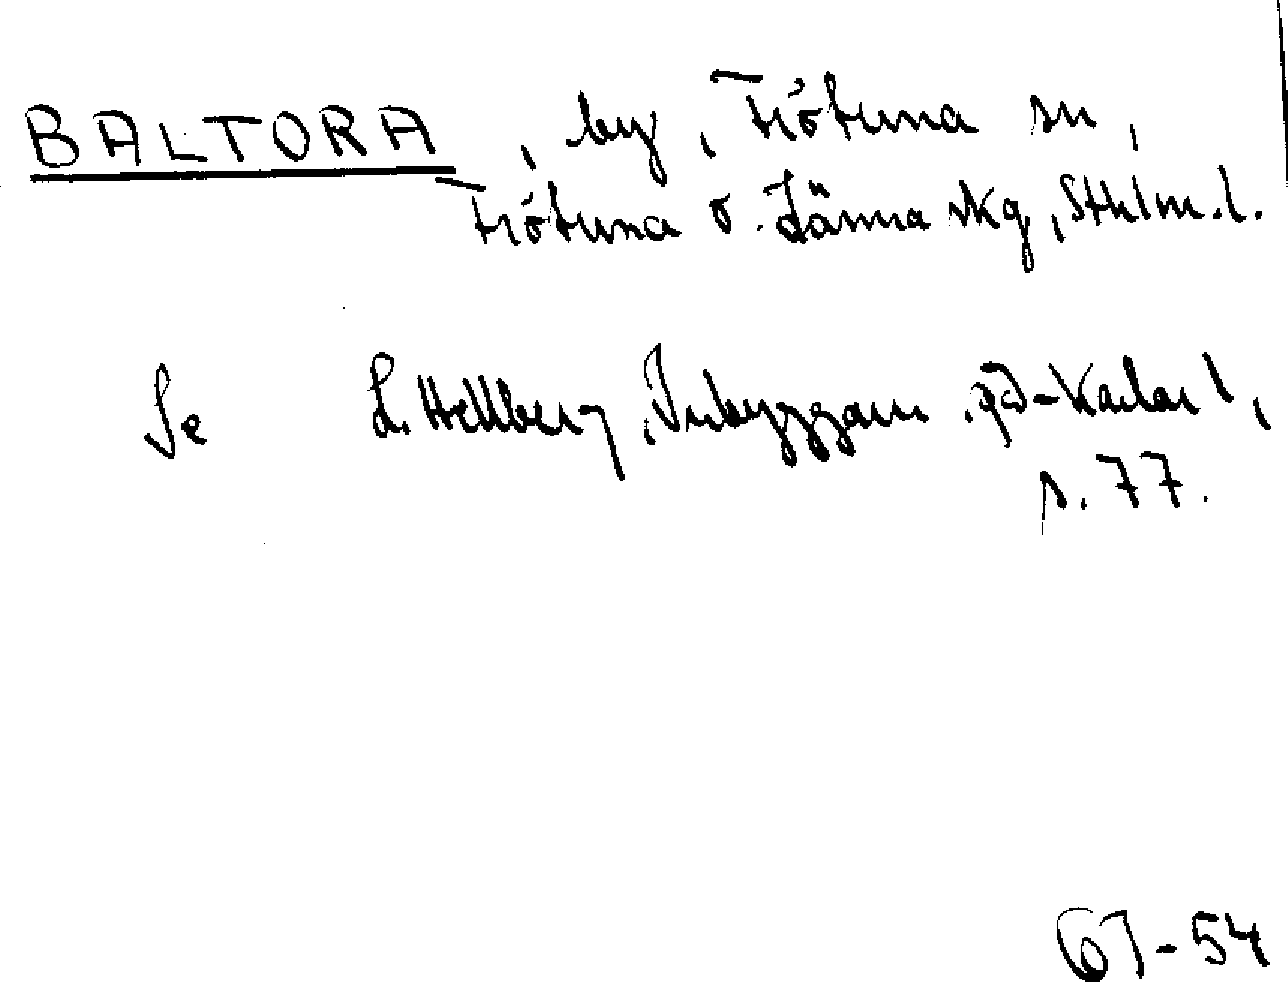 BALTORA, by, Frötuna sn,
Frötuna o. Länna skg, Sthlm.l.
Se L. Hellberg, Inbyggarn. på -karlar,
s. 77.
61-54